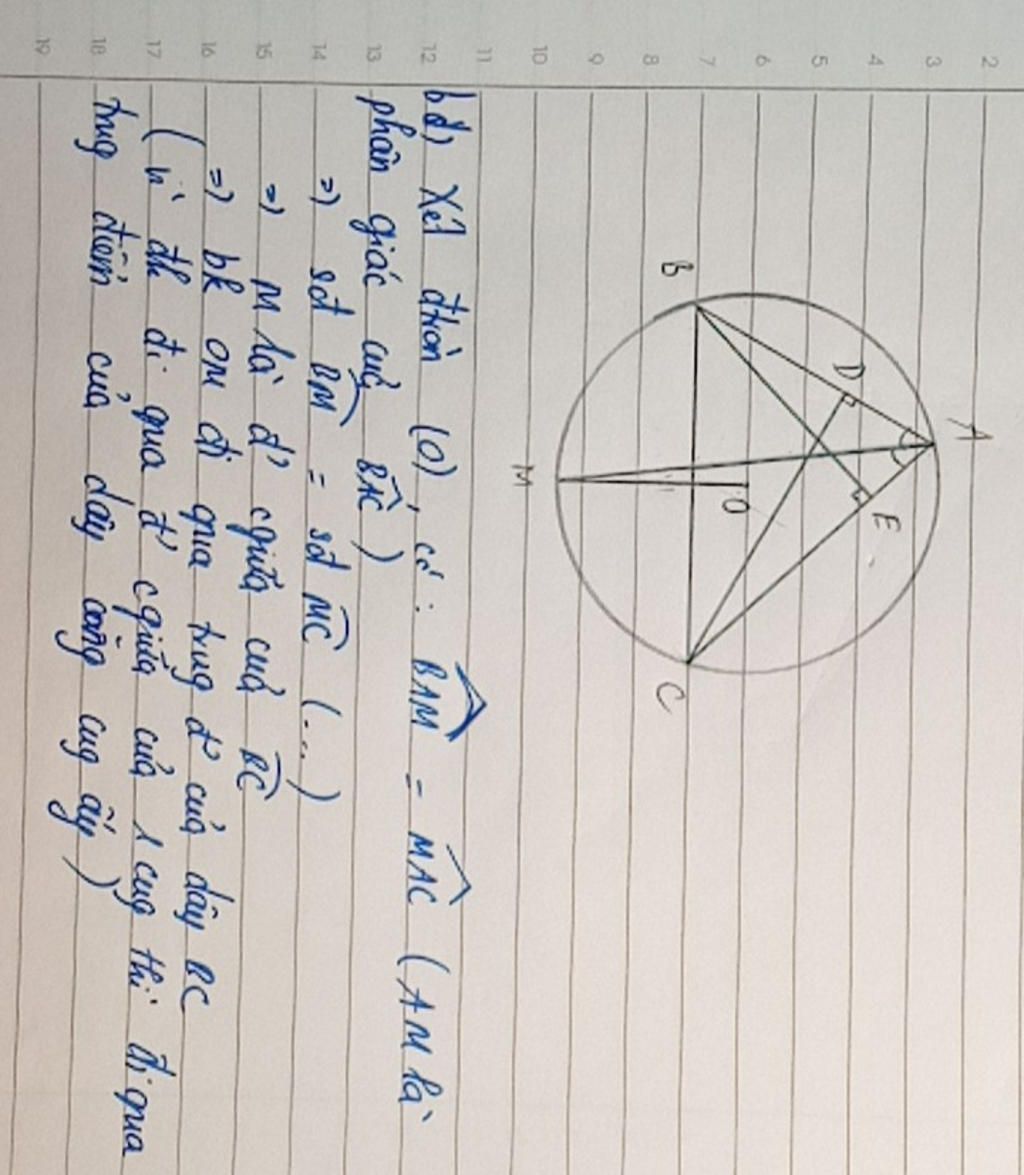 2
3
4
5
6
7
8
9
10
11
12
13
14
15
16
17
18
19
A
D
E
B
O
C
M
bđ) Xét đtròn (O), có: BAM = MAC (AM là
phân giác củả BAC)
=) sđ BM = sđ MC (...)
=) M là đ' cgiữa củả BC
=) bk OM đi qua trug đ' củả dây BC
(vì đk đi qua đ' cgiữa củả 1 cug thì đi qua
trug điểm củả dây căng cug ấy)